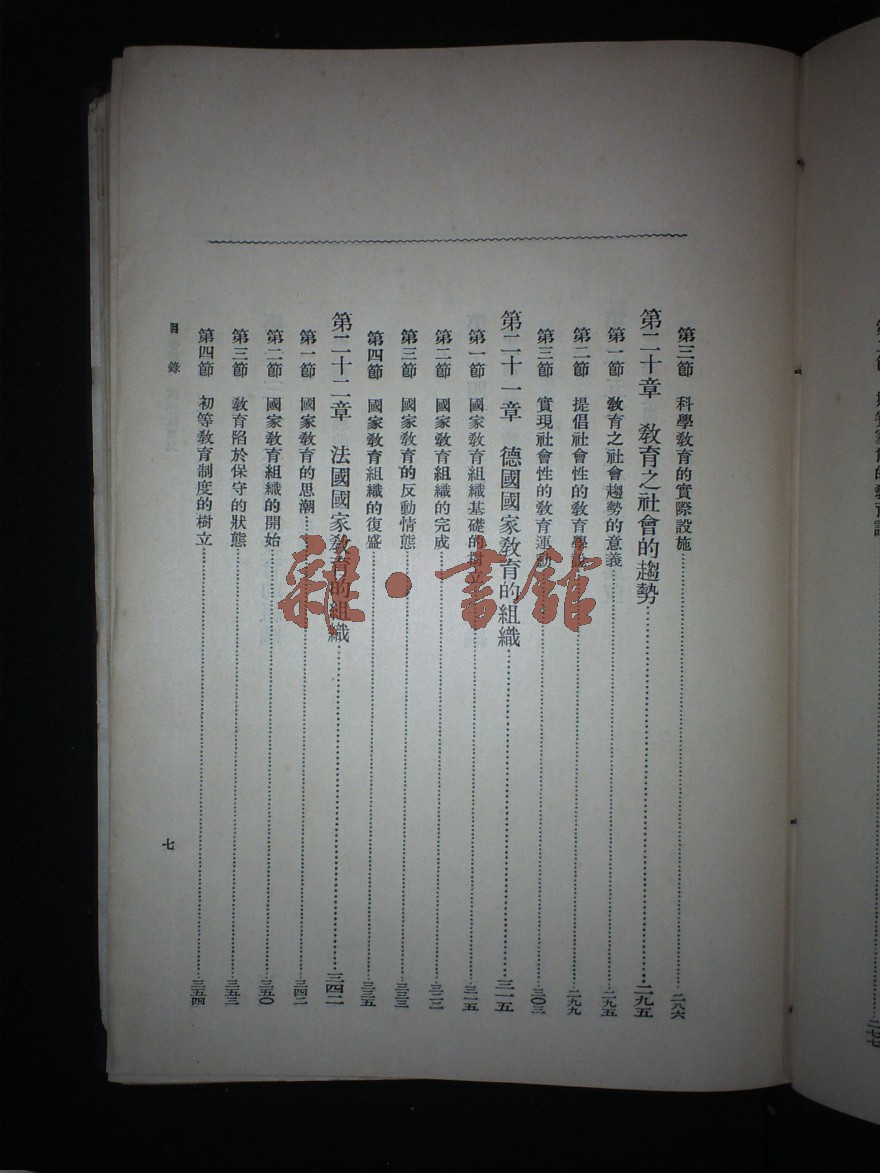 第三節　科學敎育的實際設施……二八六
第二十章　敎育之社會的趨勢……二九五
第一節　敎育之社會趨勢的意義……二九五
第二節　提倡社會性的敎育學說……二九九
第三節　實現社會性的敎育運動……三〇三
第二十一章　德國國家敎育的組織……三一五
第一節　國家敎育組織基礎的樹立……三一五
第二節　國家敎育組織的完成……三二二
第三節　國家敎育的反動情態……三三三
第四節　國家敎育組織的復盛……三三五
第二十二章　法國國家敎育的組織……三四二
第一節　國家敎育的思潮……三四二
第二節　國家敎育組織的開始……三五〇
第三節　敎育陷於保守的狀態……三五三
第四節　初等敎育制度的樹立……三五四
目錄
七
雜·書館